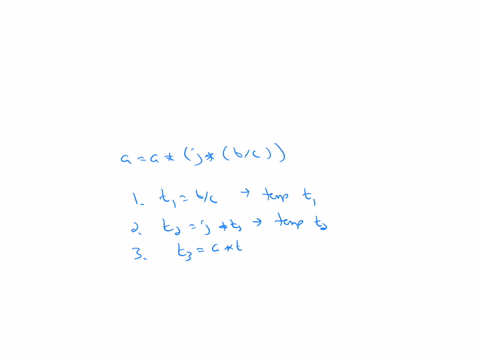 a = a * (j * (b/c))
1. t₁ = b/c → temp t₁
2. t₂ = j * t₁ → temp t₂
3. t₃ = a * t